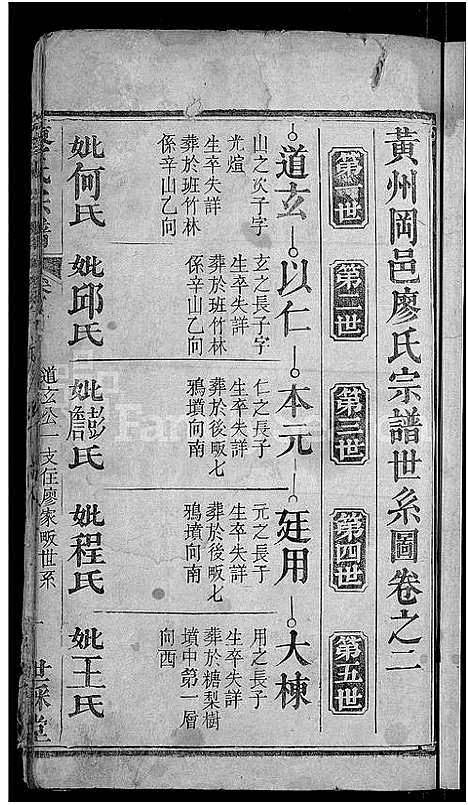 黃州岡邑廖氏宗譜世系圖卷之二
第一世
第二世
第三世
第四世
第五世
道玄
以仁
本元
廷用
大棟
山之次子字
光煊
生卒失詳
葬於班竹林
係辛山乙向
玄之長子字
生卒失詳
葬於班竹林
係辛山乙向
仁之長子
生卒失詳
葬於後畈七
鴉墳向南
元之長子
生卒失詳
葬於後畈七
鴉墳向南
用之長子
生卒失詳
葬於糖梨樹
墳中第一層
向西
妣何氏
妣邱氏
妣彭氏
詹
妣程氏
妣王氏
氏宗譜
道玄公一支住廖家畈世系
一
世綵堂